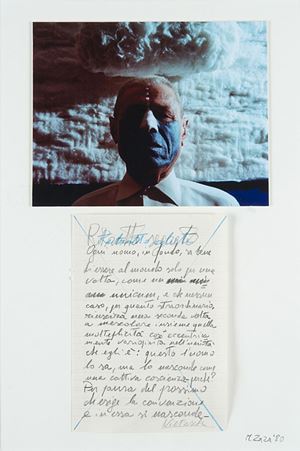 Ritratto segreto
Ogni uomo, in fondo, sa bene
di essere al mondo solo per una
volta, come un
unicum, e che nessun
caso, per quanto straordinario,
una seconda volta
a mescolare insieme quella
molteplicità così
mente variopinta nell'unità
che egli è: questo l'uomo
lo sa, ma lo nasconde come
una cattiva coscienza, perché?
Per paura del prossimo
che esige la convenzione
e in essa si nasconde.
M. Zaza '80